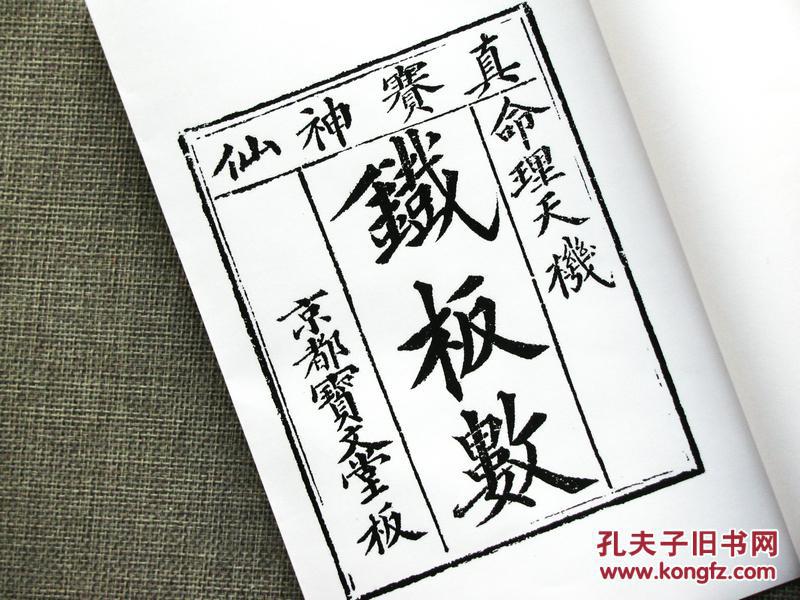 真賽神仙
命理天機
鐵板數
京都寶文堂板
孔夫子旧书网
www.kongfz.com